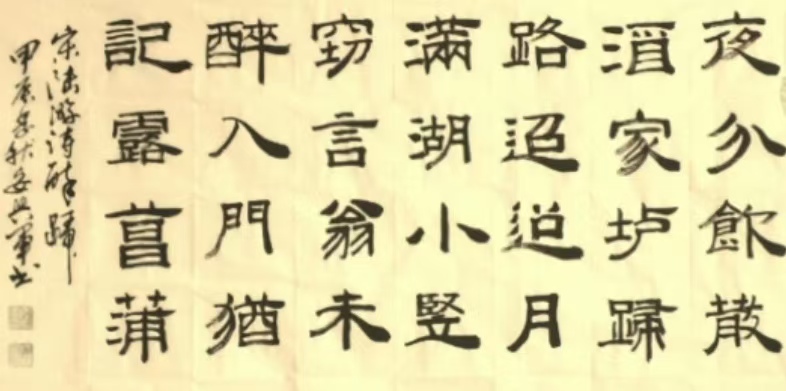 夜分飲散
酒家垆歸
路迢迢月
滿湖小竪
窃言翁未
醉入門猶
記露菖蒲
宋陸游詩醉歸
甲辰年秋安興軍书